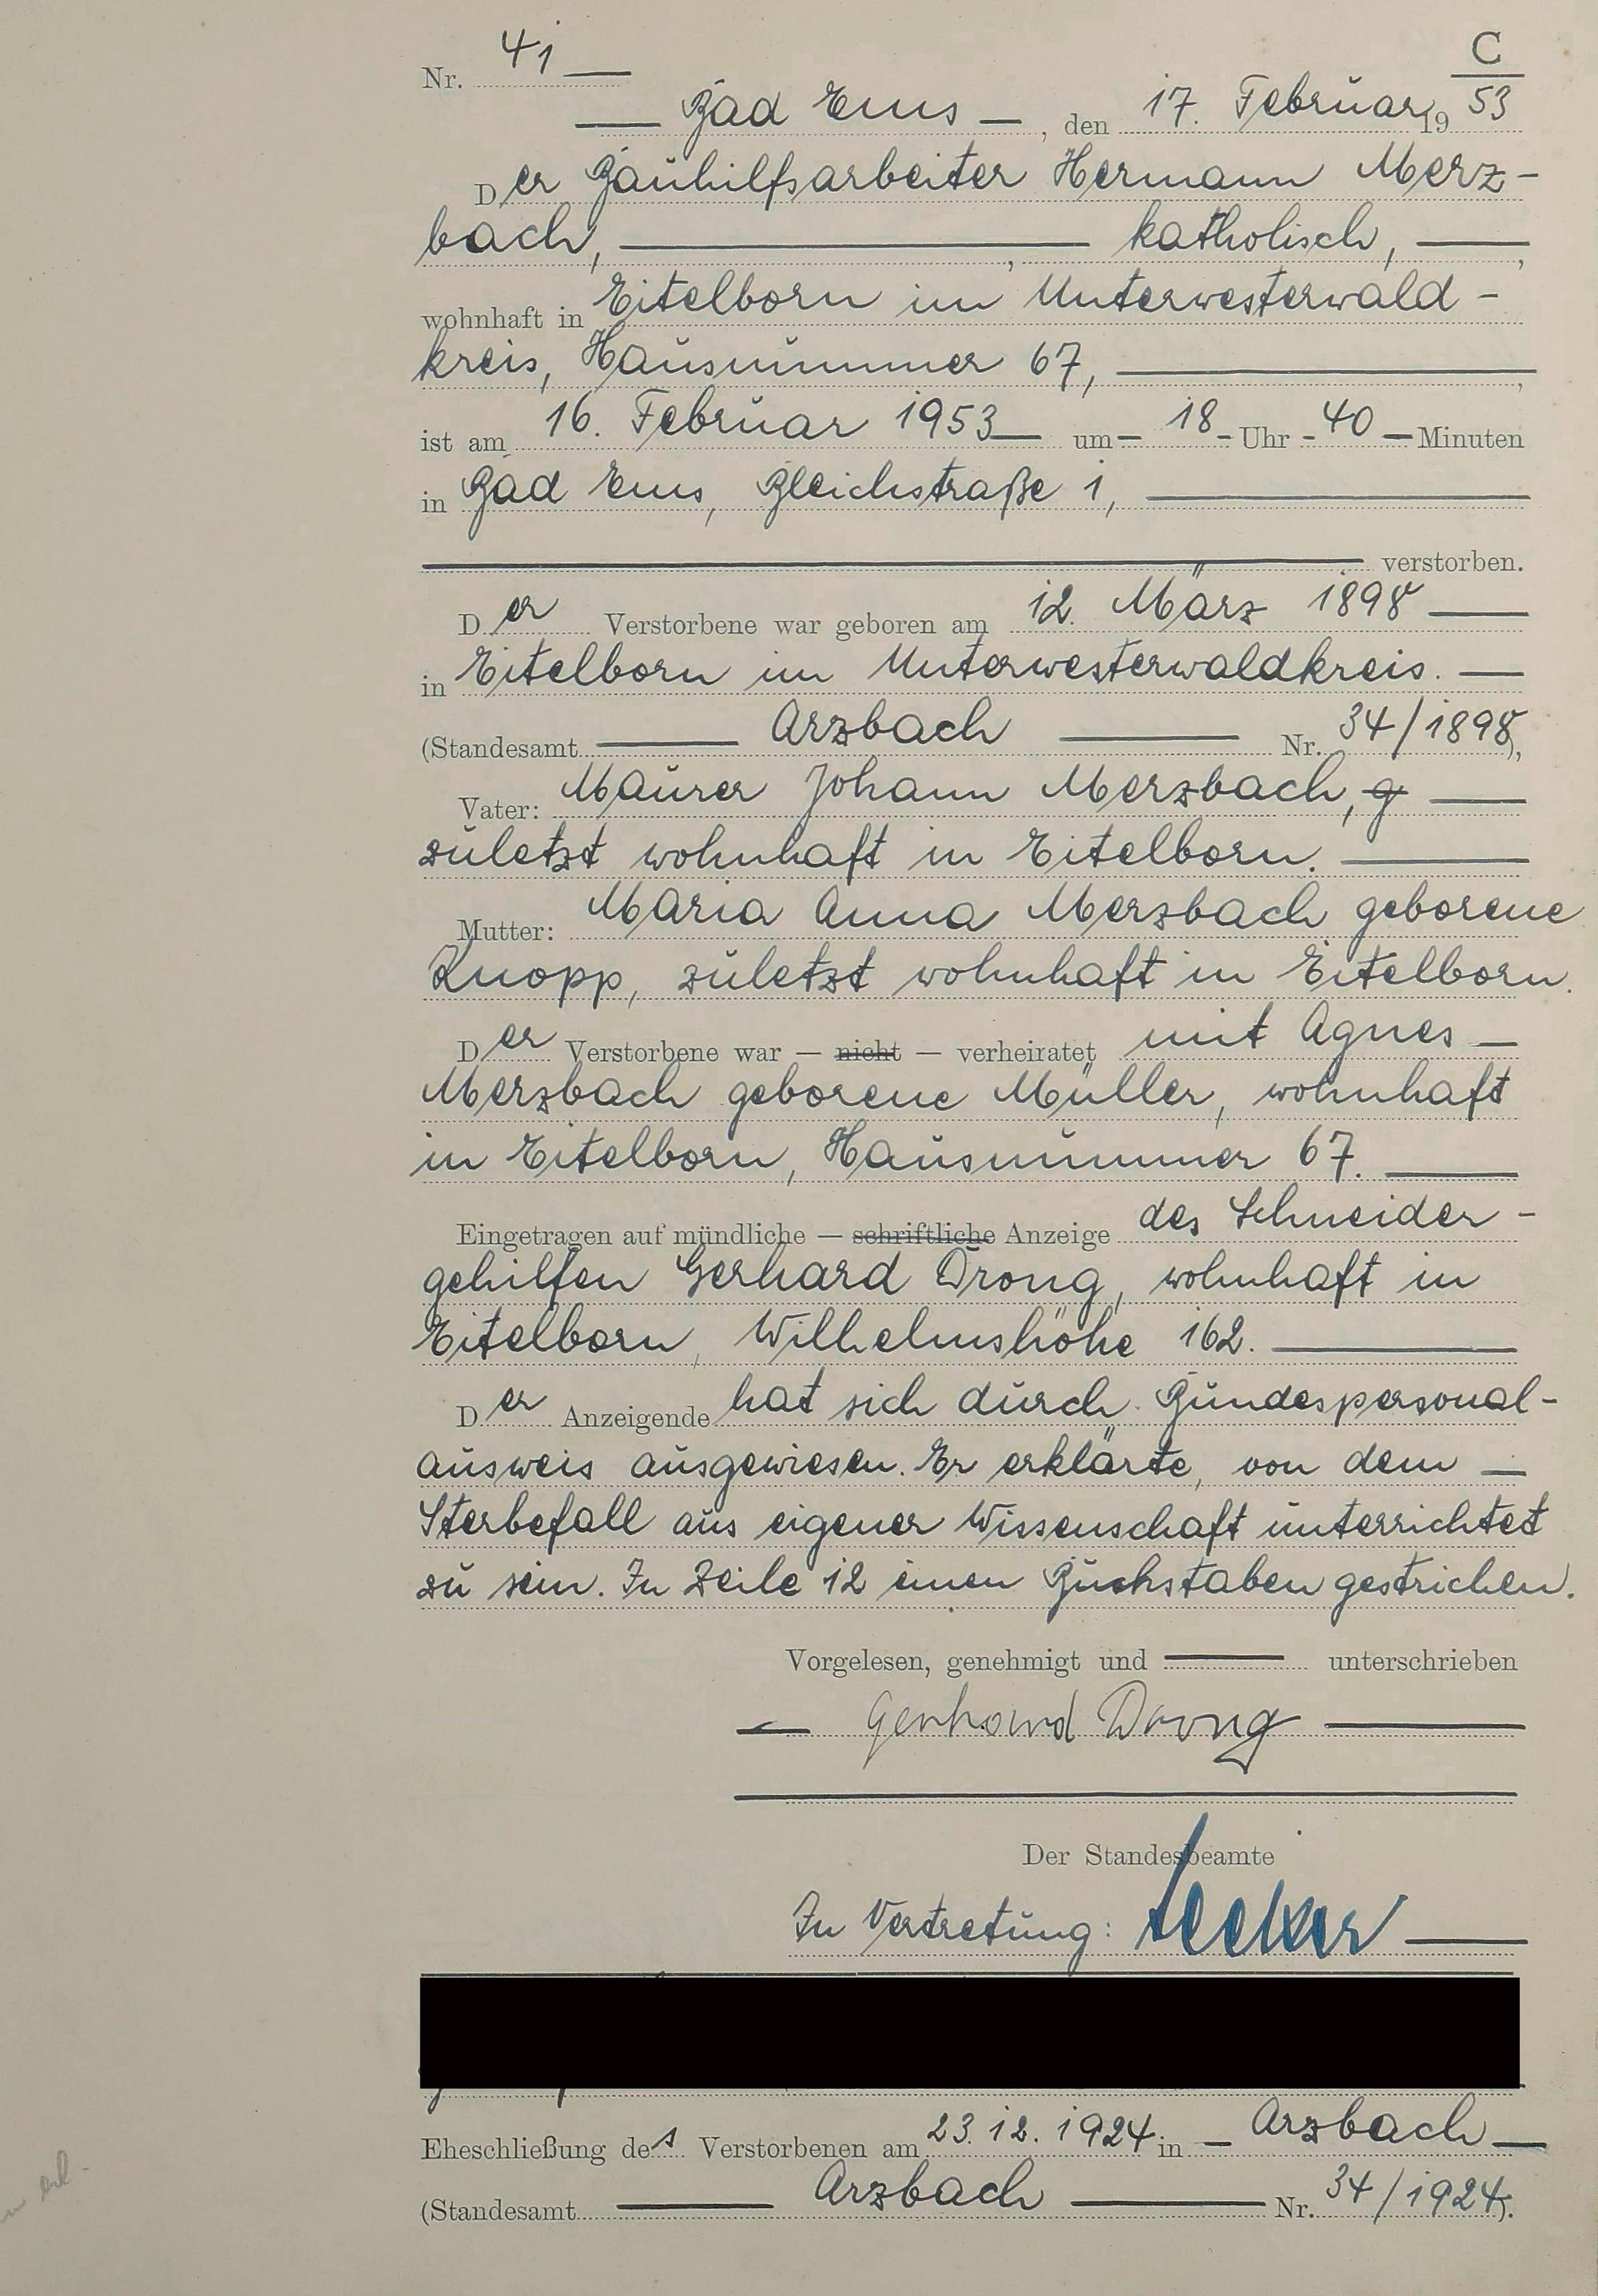 Nr. 41
C
Bad Ems, den 17. Februar 1953
Der Bauhilfsarbeiter Hermann Merz-
bach, katholisch,
wohnhaft in Eitelborn im Unterwesterwald-
kreis, Hausnummer 67,
ist am 16. Februar 1953 um 18 Uhr 40 Minuten
in Bad Ems, Bleichstraße 1,
verstorben.
Der Verstorbene war geboren am 12. März 1898
in Eitelborn im Unterwesterwaldkreis.
(Standesamt Arzbach Nr. 34/1898),
Vater: Maurer Johann Merzbach, g
zuletzt wohnhaft in Eitelborn.
Mutter: Maria Anna Merzbach geborene
Knopp, zuletzt wohnhaft in Eitelborn.
Der Verstorbene war — nicht — verheiratet mit Agnes
Merzbach geborene Müller, wohnhaft
in Eitelborn, Hausnummer 67.
Eingetragen auf mündliche — schriftliche Anzeige des Schneider-
gehilfen Gerhard Drong, wohnhaft in
Eitelborn, Wilhelmshöhe 162.
Der Anzeigende hat sich durch Bundespersonal-
ausweis ausgewiesen. Er erklärte, von dem
Sterbefall aus eigener Wissenschaft unterrichtet
zu sein. In Zeile 12 einen Buchstaben gestrichen.
Vorgelesen, genehmigt und unterschrieben
Gerhard Drong
Der Standesbeamte
In Vertretung:
Eheschließung des Verstorbenen am 23.12.1924 in Arzbach
(Standesamt Arzbach Nr. 34/1924).